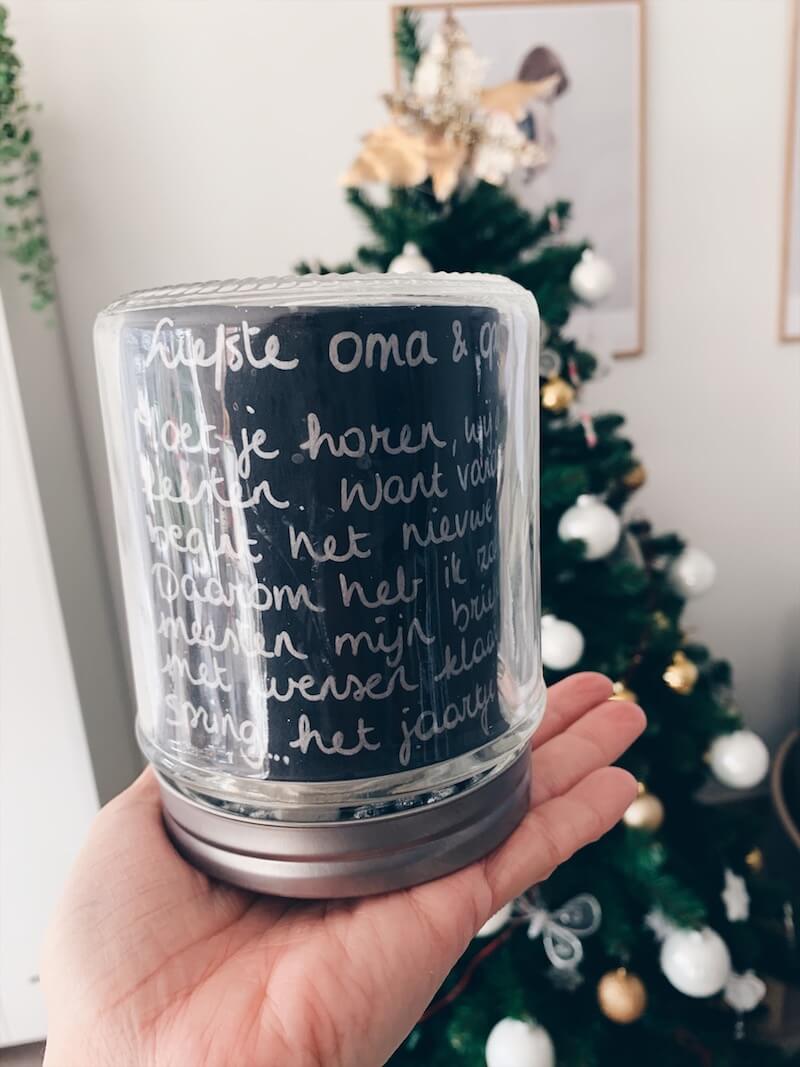 Liefste oma &
Moet je horen, wij
feesten. Want
begint het nieuwe
Daarom heb ik
meesten mijn
met wensen klaar
Spring... het